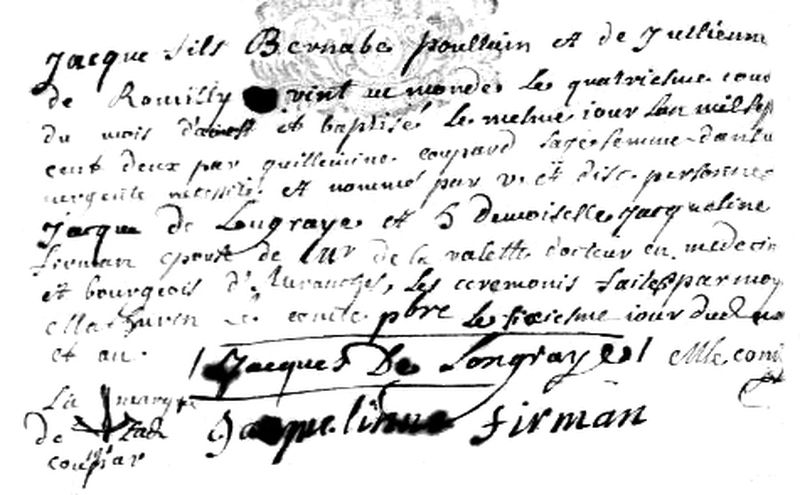 Jacque fils Bernabe poullain et de Jullienne
de Romilly vint au monde le quatriesme iour
du mois d'aoust et baptisé le mesme iour lan mil sep
cent deux par guillemine coupard sage femme dans lu
urgente necessité et nommé par v. et disc. personnes
Jacque de Longraye et h demoiselle Jacqueline
firman epouse de Mr de la valette docteur en medecin
et bourgeois d'Avranches, les ceremonis faites par moy
Mathurin le comte pbre le sixiesme iour dud mo
et an.
Jacques De Longraye M le com
La marque
Jacqueline firman
de
coupar